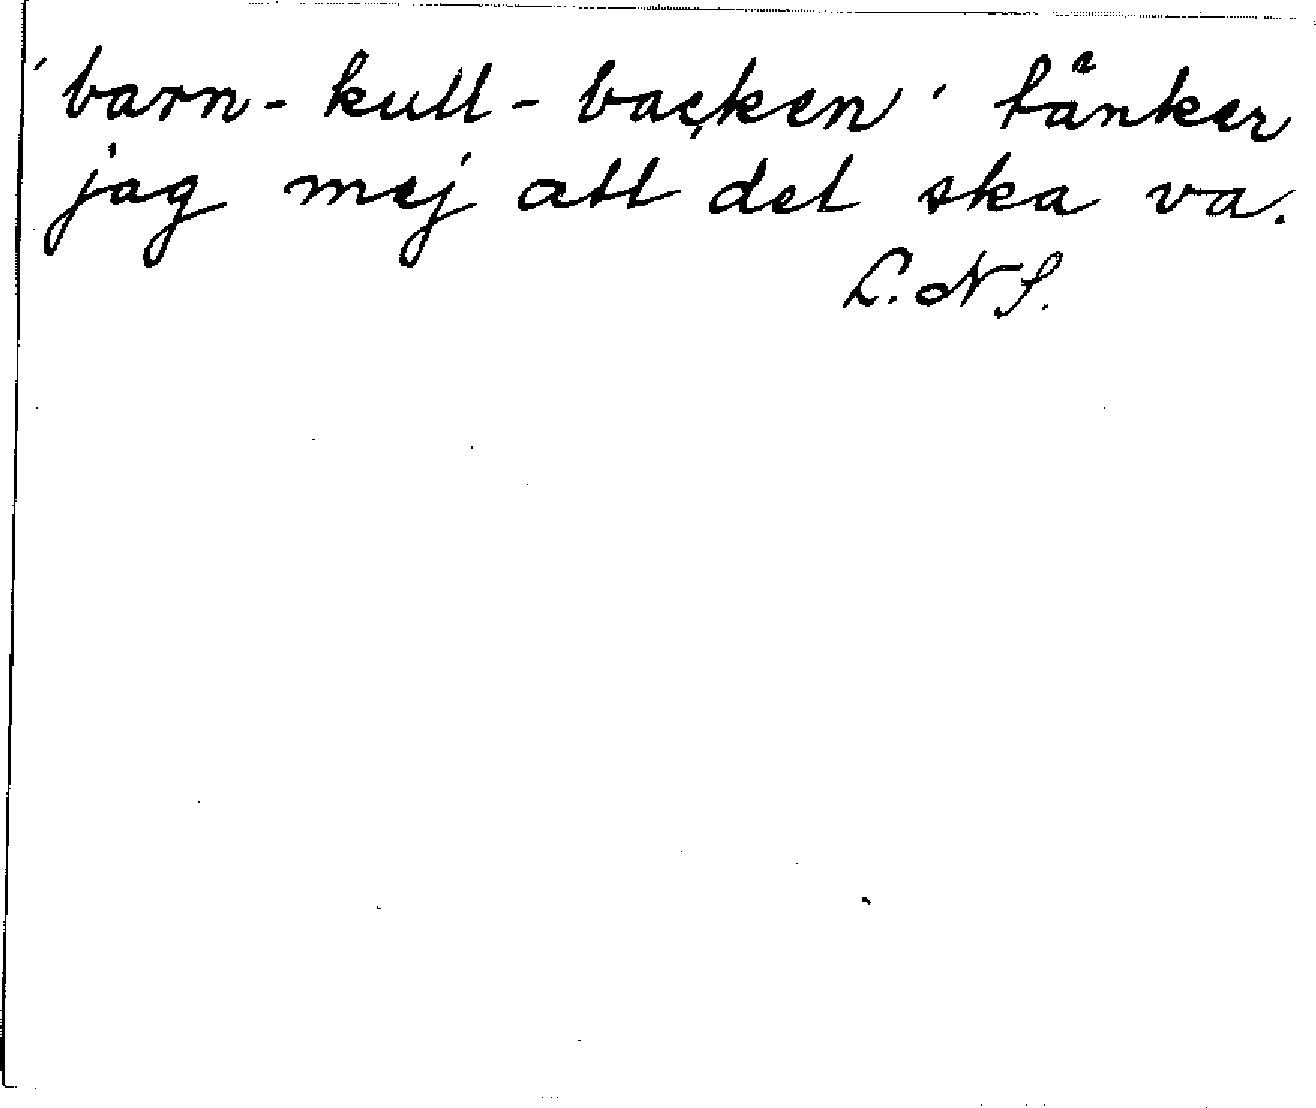 'barn-kull-backen' tänker
jag mej att det ska va.
L. N S.